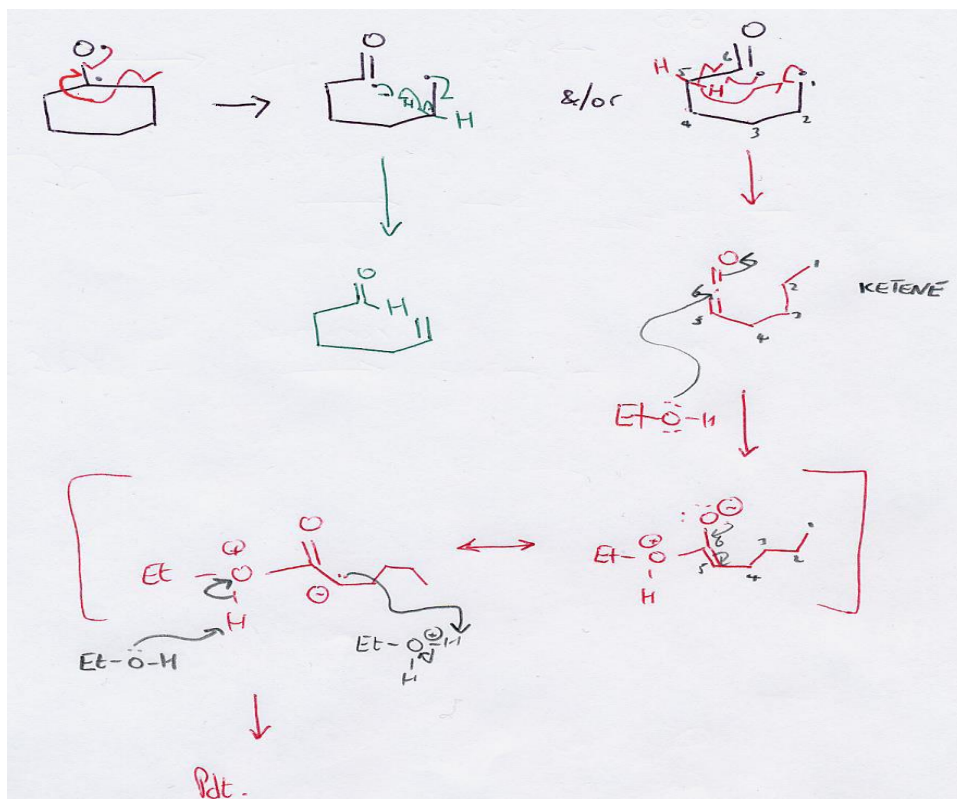 O
O
O
&/or
H
H
H
H
6
5
4
3
2
1
O
H
O
6
5
4
3
2
1
KETENE
Et-O-H
O
Et-O
⊕
H
⊖
Et-O-H
Et-O-H
⊕
H
O
⊖
Et-O
⊕
H
6
5
4
3
2
1
Pdt.